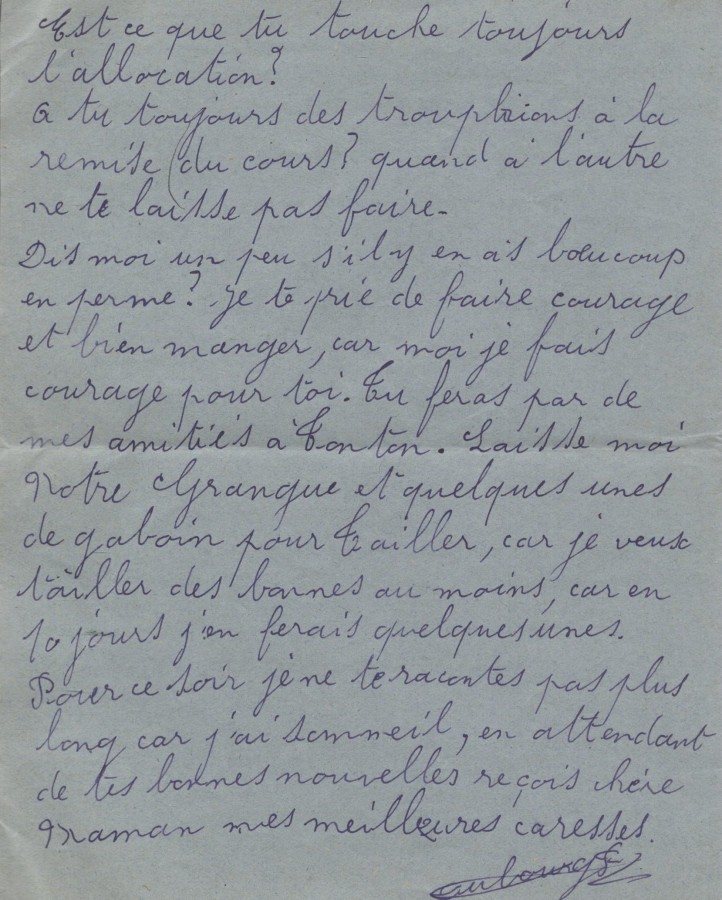 Est ce que tu touche toujours
l'allocation?
a tu toujours des troupbions à la
remise du cours? quand à l'autre
ne te laisse pas faire-
Dis moi un peu s'il y en as beaucoup
en perme? Je te prie de faire courage
et bien manger, car moi je fais
courage pour toi. Tu feras par de
mes amitiés à Tonton. Laisse moi
Notre Grangue et quelques unes
de gaboin pour Tailler, car je veux
tailler des bonnes au moins, car en
10 jours j'en ferais quelques unes.
Pour ce soir je ne te racontes pas plus
long car j'ai sommeil, en attendant
de tes bonnes nouvelles reçois chère
Maman mes meilleures caresses.